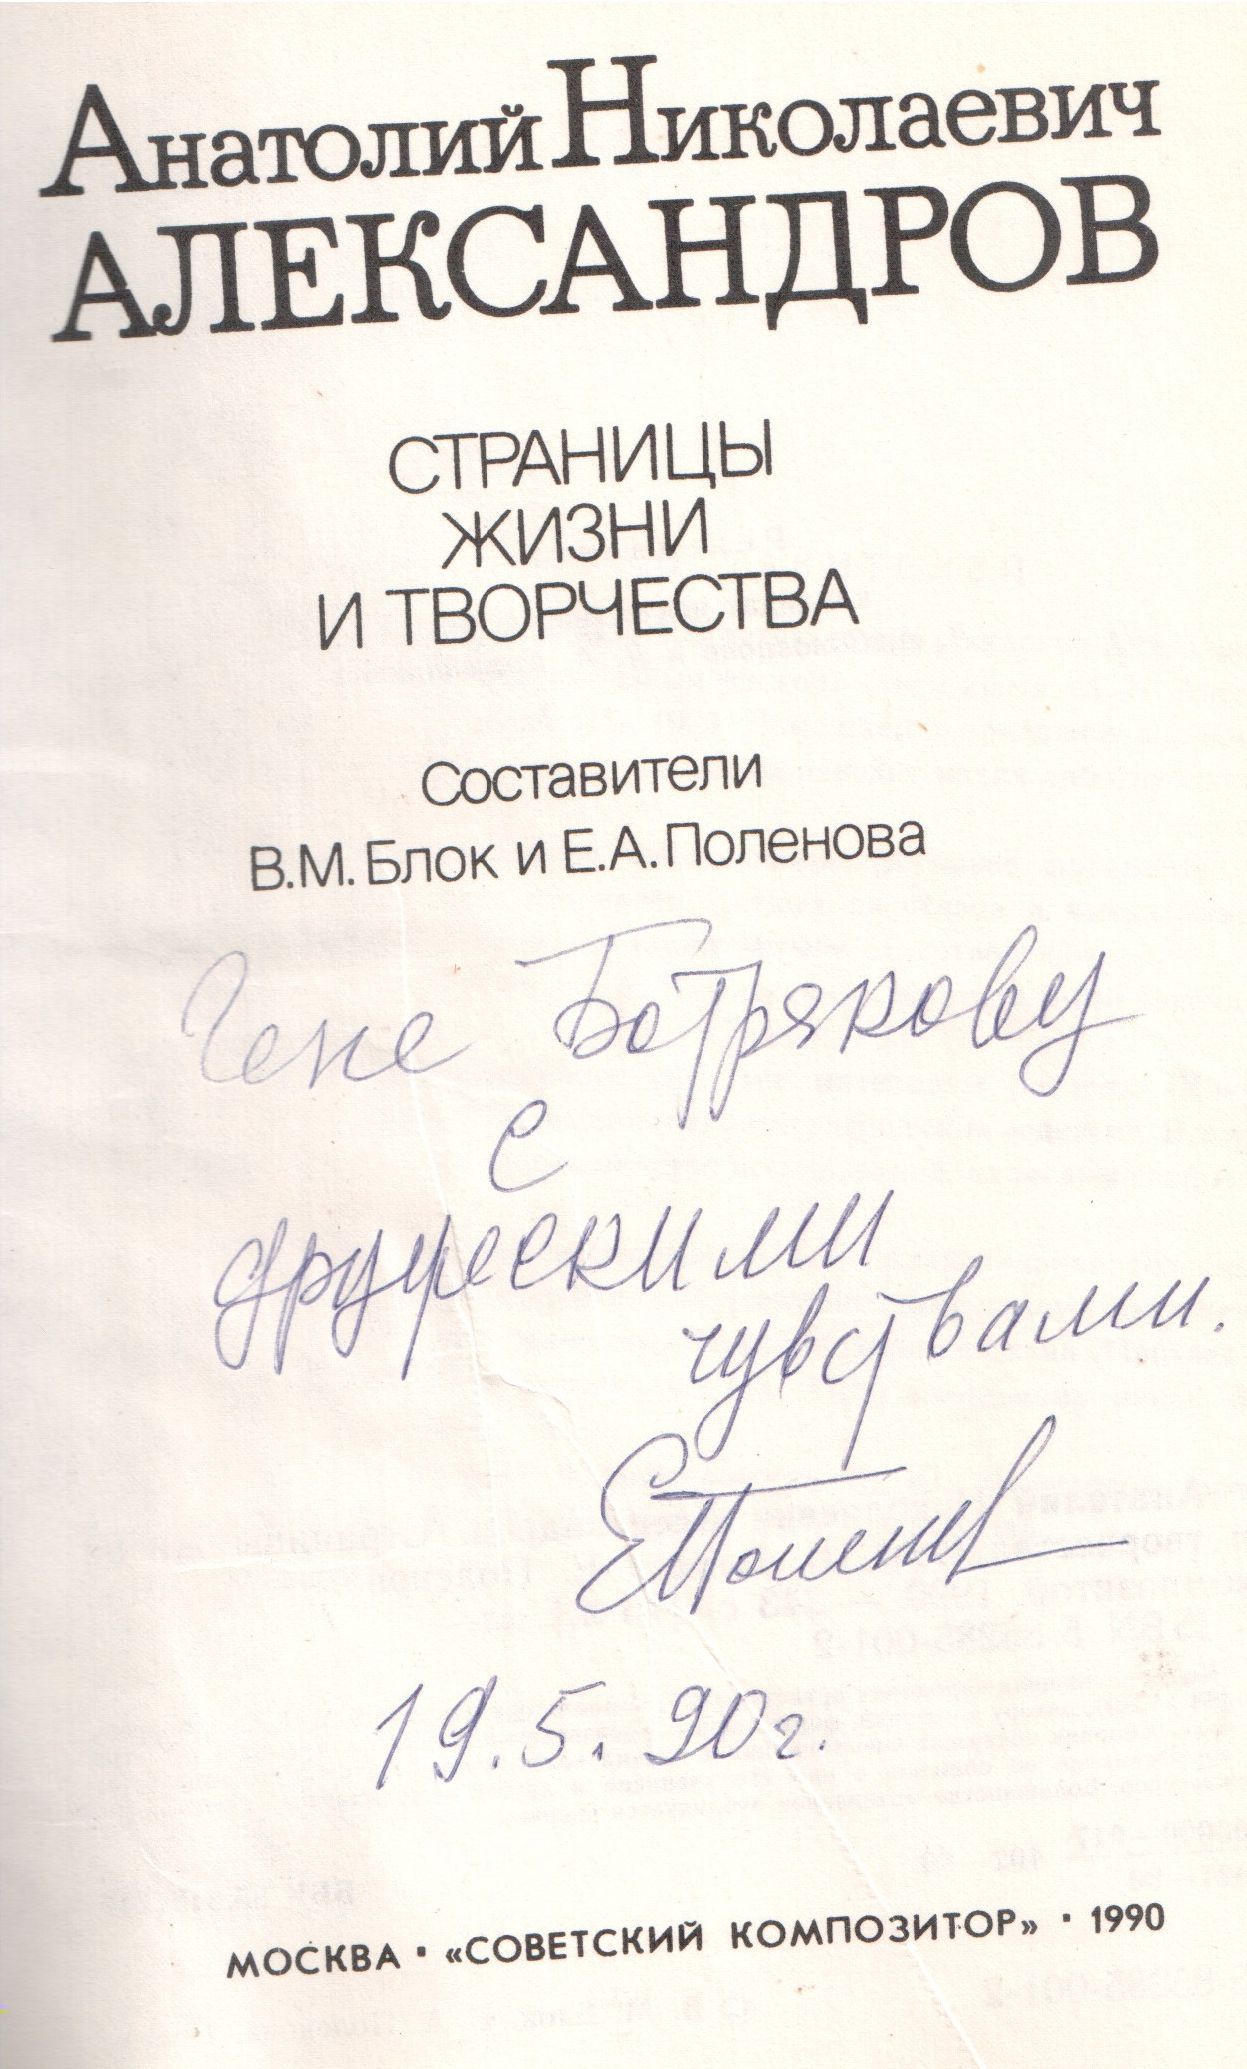 Анатолий Николаевич
АЛЕКСАНДРОВ
СТРАНИЦЫ
ЖИЗНИ
И ТВОРЧЕСТВА
Составители
В.М.Блок и Е.А.Поленова
Гене Ботрякову
с
дружескими
чувствами.
ЕПоленов
19.5.90г.
МОСКВА · «СОВЕТСКИЙ КОМПОЗИТОР» · 1990